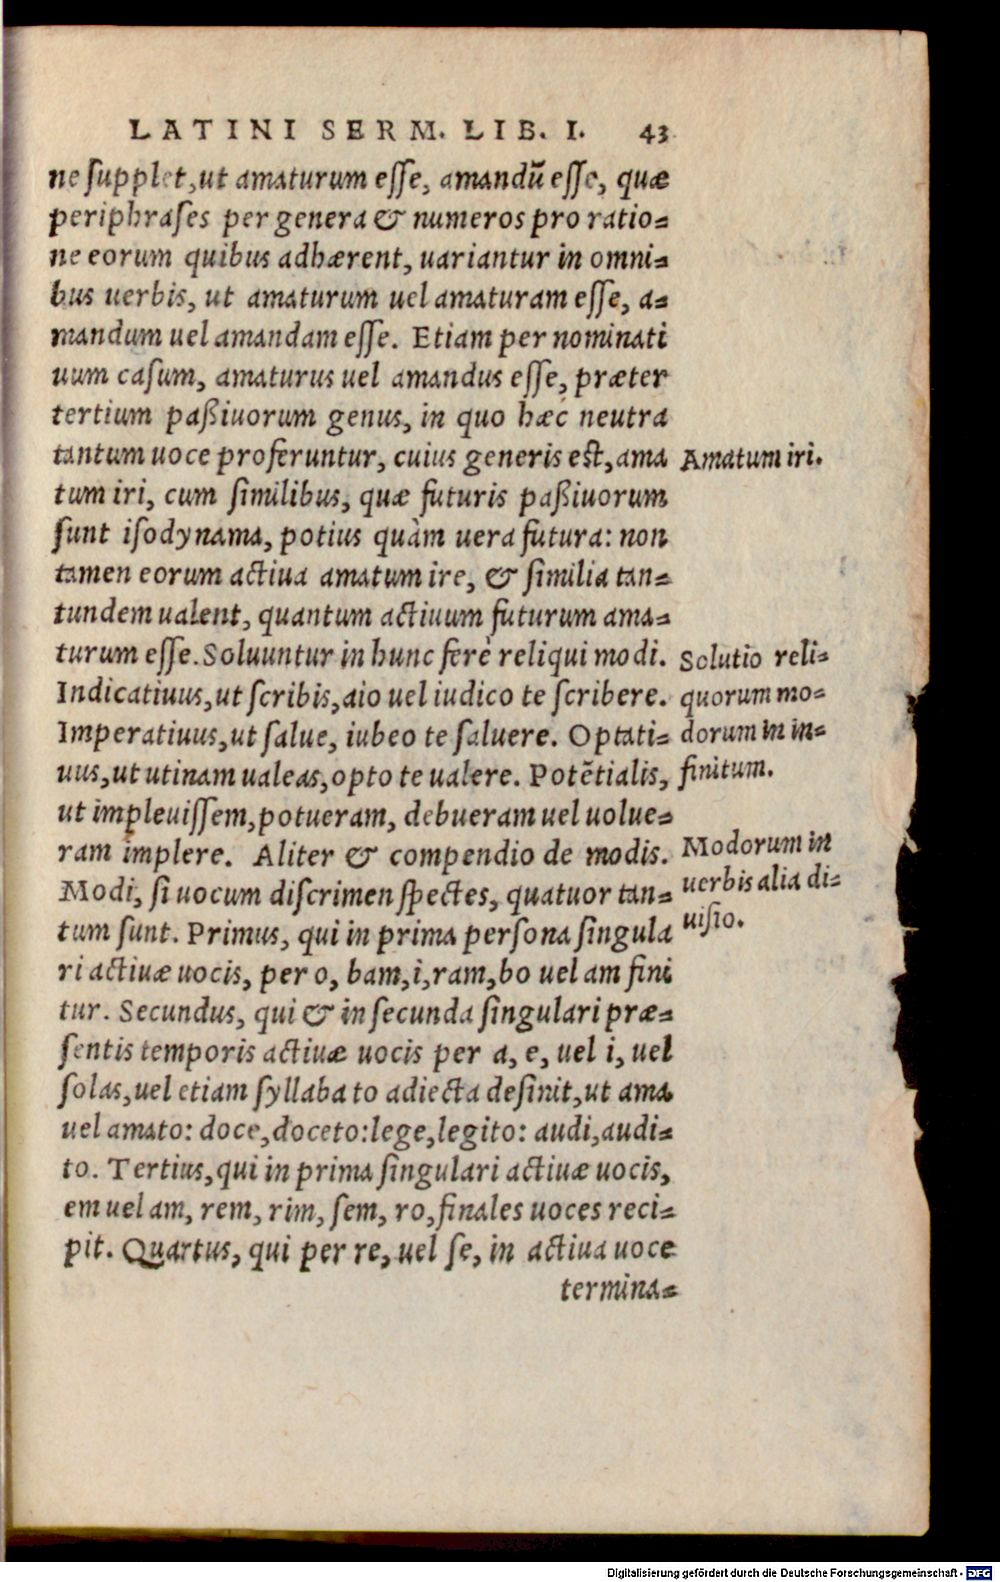 LATINI SERM. LIB. I. 43
ne ſupplet, ut amaturum eſſe, amandū eſſe, quæ
periphraſes per genera & numeros pro ratio-
ne eorum quibus adhærent, uariantur in omni-
bus uerbis, ut amaturum uel amaturam eſſe, a-
mandum uel amandam eſſe. Etiam per nominati
uum caſum, amaturus uel amandus eſſe, præter
tertium paßiuorum genus, in quo hæc neutra
tantum uoce proferuntur, cuius generis est, ama
Amatum iri.
tum iri, cum ſimilibus, quæ futuris paßiuorum
ſunt iſodynama, potius quàm uera futura: non
tamen eorum actiua amatum ire, & ſimilia tan-
tundem ualent, quantum actiuum futurum ama-
turum eſſe. Soluuntur in hunc ferè reliqui modi.
Indicatiuus, ut ſcribis, aio uel iudico te ſcribere.
Imperatiuus, ut ſalue, iubeo te ſaluere. Optati-
uus, ut utinam ualeas, opto te ualere. Potētialis,
Solutio reli-
quorum mo-
dorum in in-
finitum.
ut impleuiſſem, potueram, debueram uel uolue-
ram implere. Aliter & compendio de modis.
Modi, ſi uocum diſcrimen ſpectes, quatuor tan-
tum ſunt. Primus, qui in prima perſona ſingula
Modorum in
uerbis alia di-
uiſio.
ri actiuæ uocis, per o, bam, i, ram, bo uel am fini
tur. Secundus, qui & in ſecunda ſingulari præ-
ſentis temporis actiuæ uocis per a, e, uel i, uel
ſolas, uel etiam ſyllaba to adiecta deſinit, ut ama
uel amato: doce, doceto: lege, legito: audi, audi-
to. Tertius, qui in prima ſingulari actiuæ uocis,
em uel am, rem, rim, ſem, ro, finales uoces reci-
pit. Quartus, qui per re, uel ſe, in actiua uoce
termina-
Digitalisierung gefördert durch die Deutsche Forschungsgemeinschaft - DFG